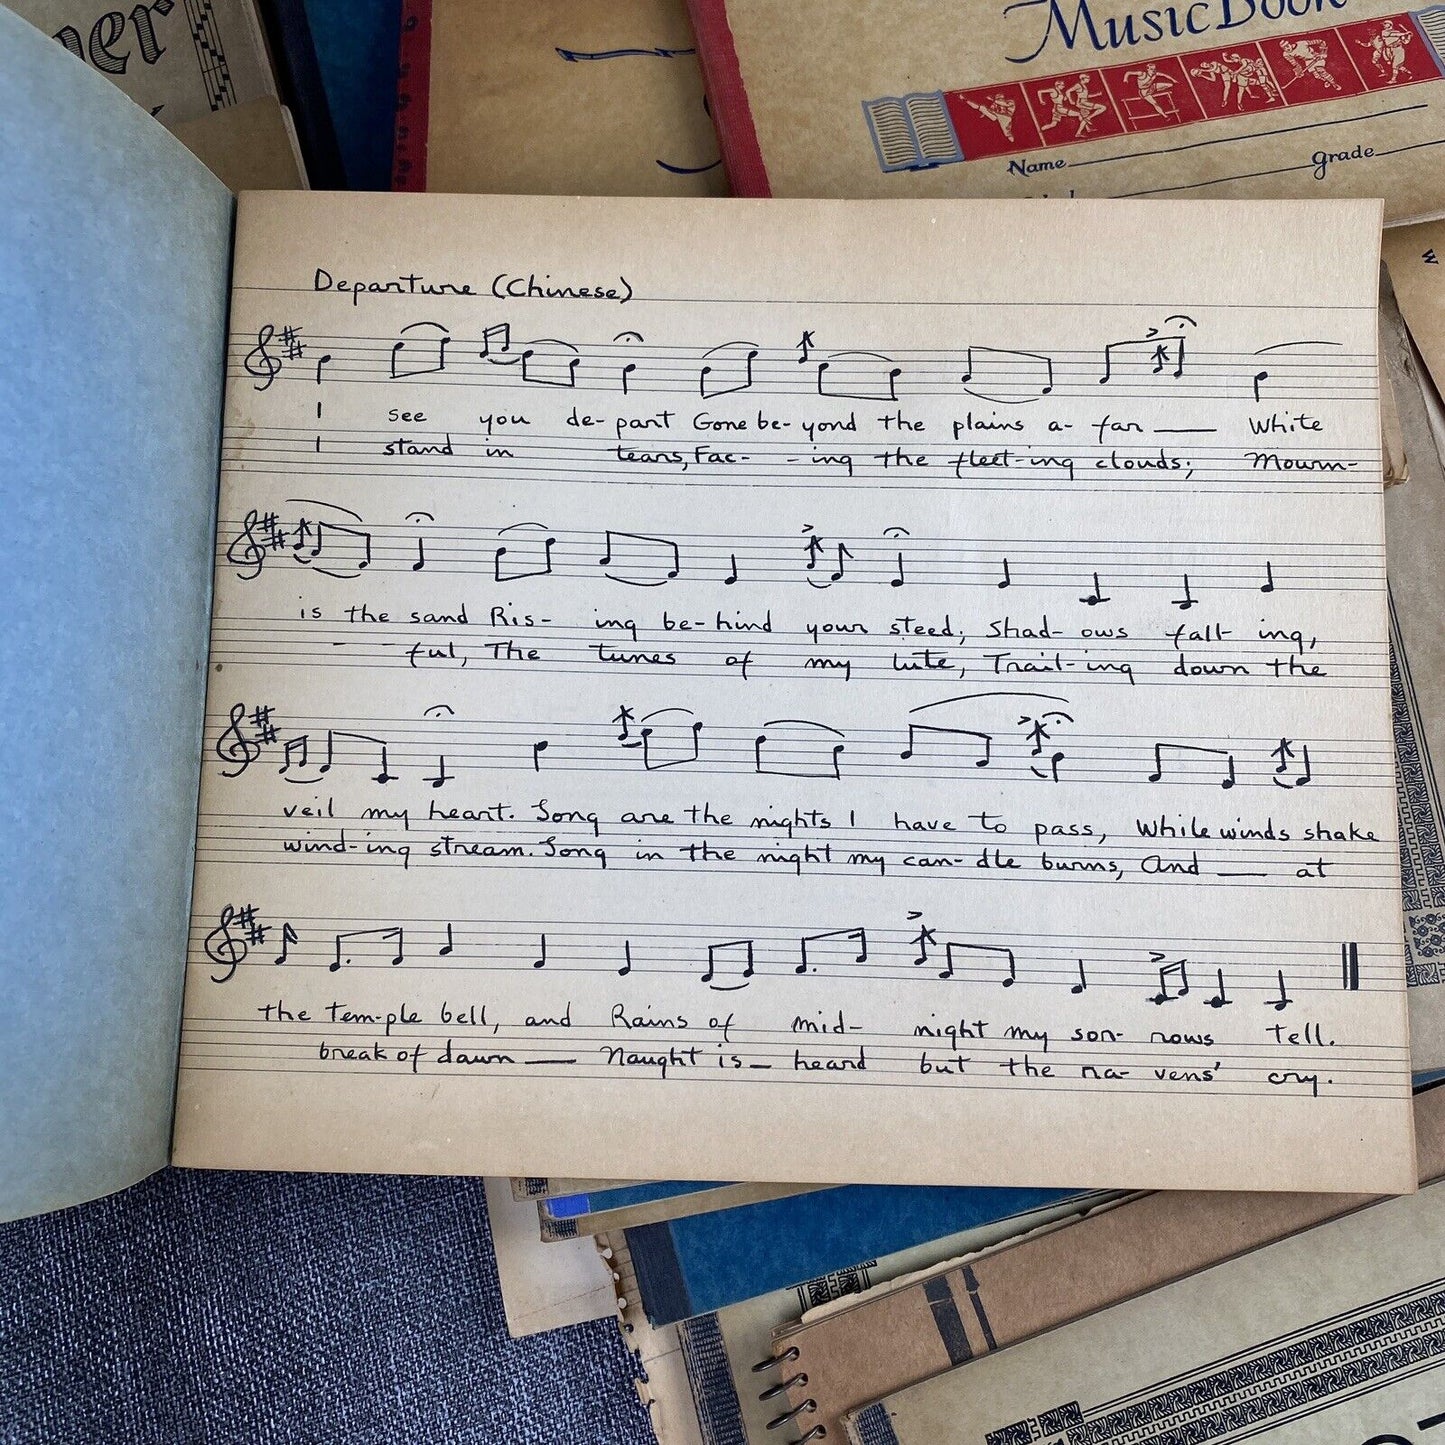 Music Book
Name
Grade
Departure (Chinese)
I see you de- part Gone be- yond the plains a- far — White
I stand in tears, Fac- - ing the fleet-ing clouds; Mourn-
is the sand Ris- ing be- hind your steed; Shad- ows fall- ing,
- - ful, The tunes of my lute, Trail-ing down the
veil my heart. Long are the nights I have to pass, While winds shake
wind-ing stream. Long in the night my can- dle burns, And — at
the tem-ple bell, and Rains of mid- night my sor- rows tell.
break of dawn — Naught is — heard but the ra- vens' cry.